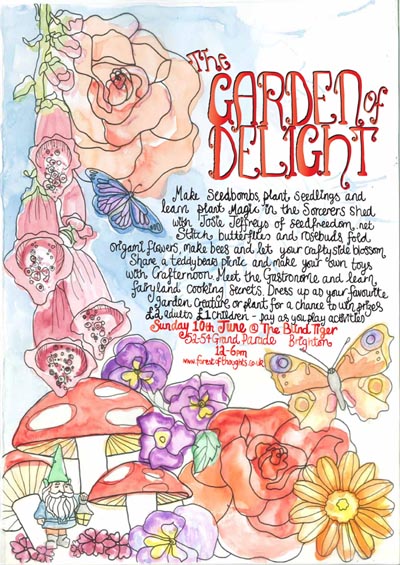 The
GARDEN of
DELIGHT
Make Seedbombs, plant seedlings and
learn plant Magic in the Sorcerers Shed
with Josie Jeffreys of seedfreedom.net
Stitch butterflies and rosebuds, fold
origami flowers, make bees and let your craftyside blossom
Share a teddybears picnic and make your own toys
with Crafternoon. Meet the Gastronome and learn
fairyland cooking secrets. Dress up as your favourite
garden Creature or plant for a chance to win prizes
£2 adults £1 children - pay as you play activities
Sunday 10th June @ The Blind Tiger
52-54 Grand Parade Brighton
12-6pm
www.forestofthoughts.co.uk